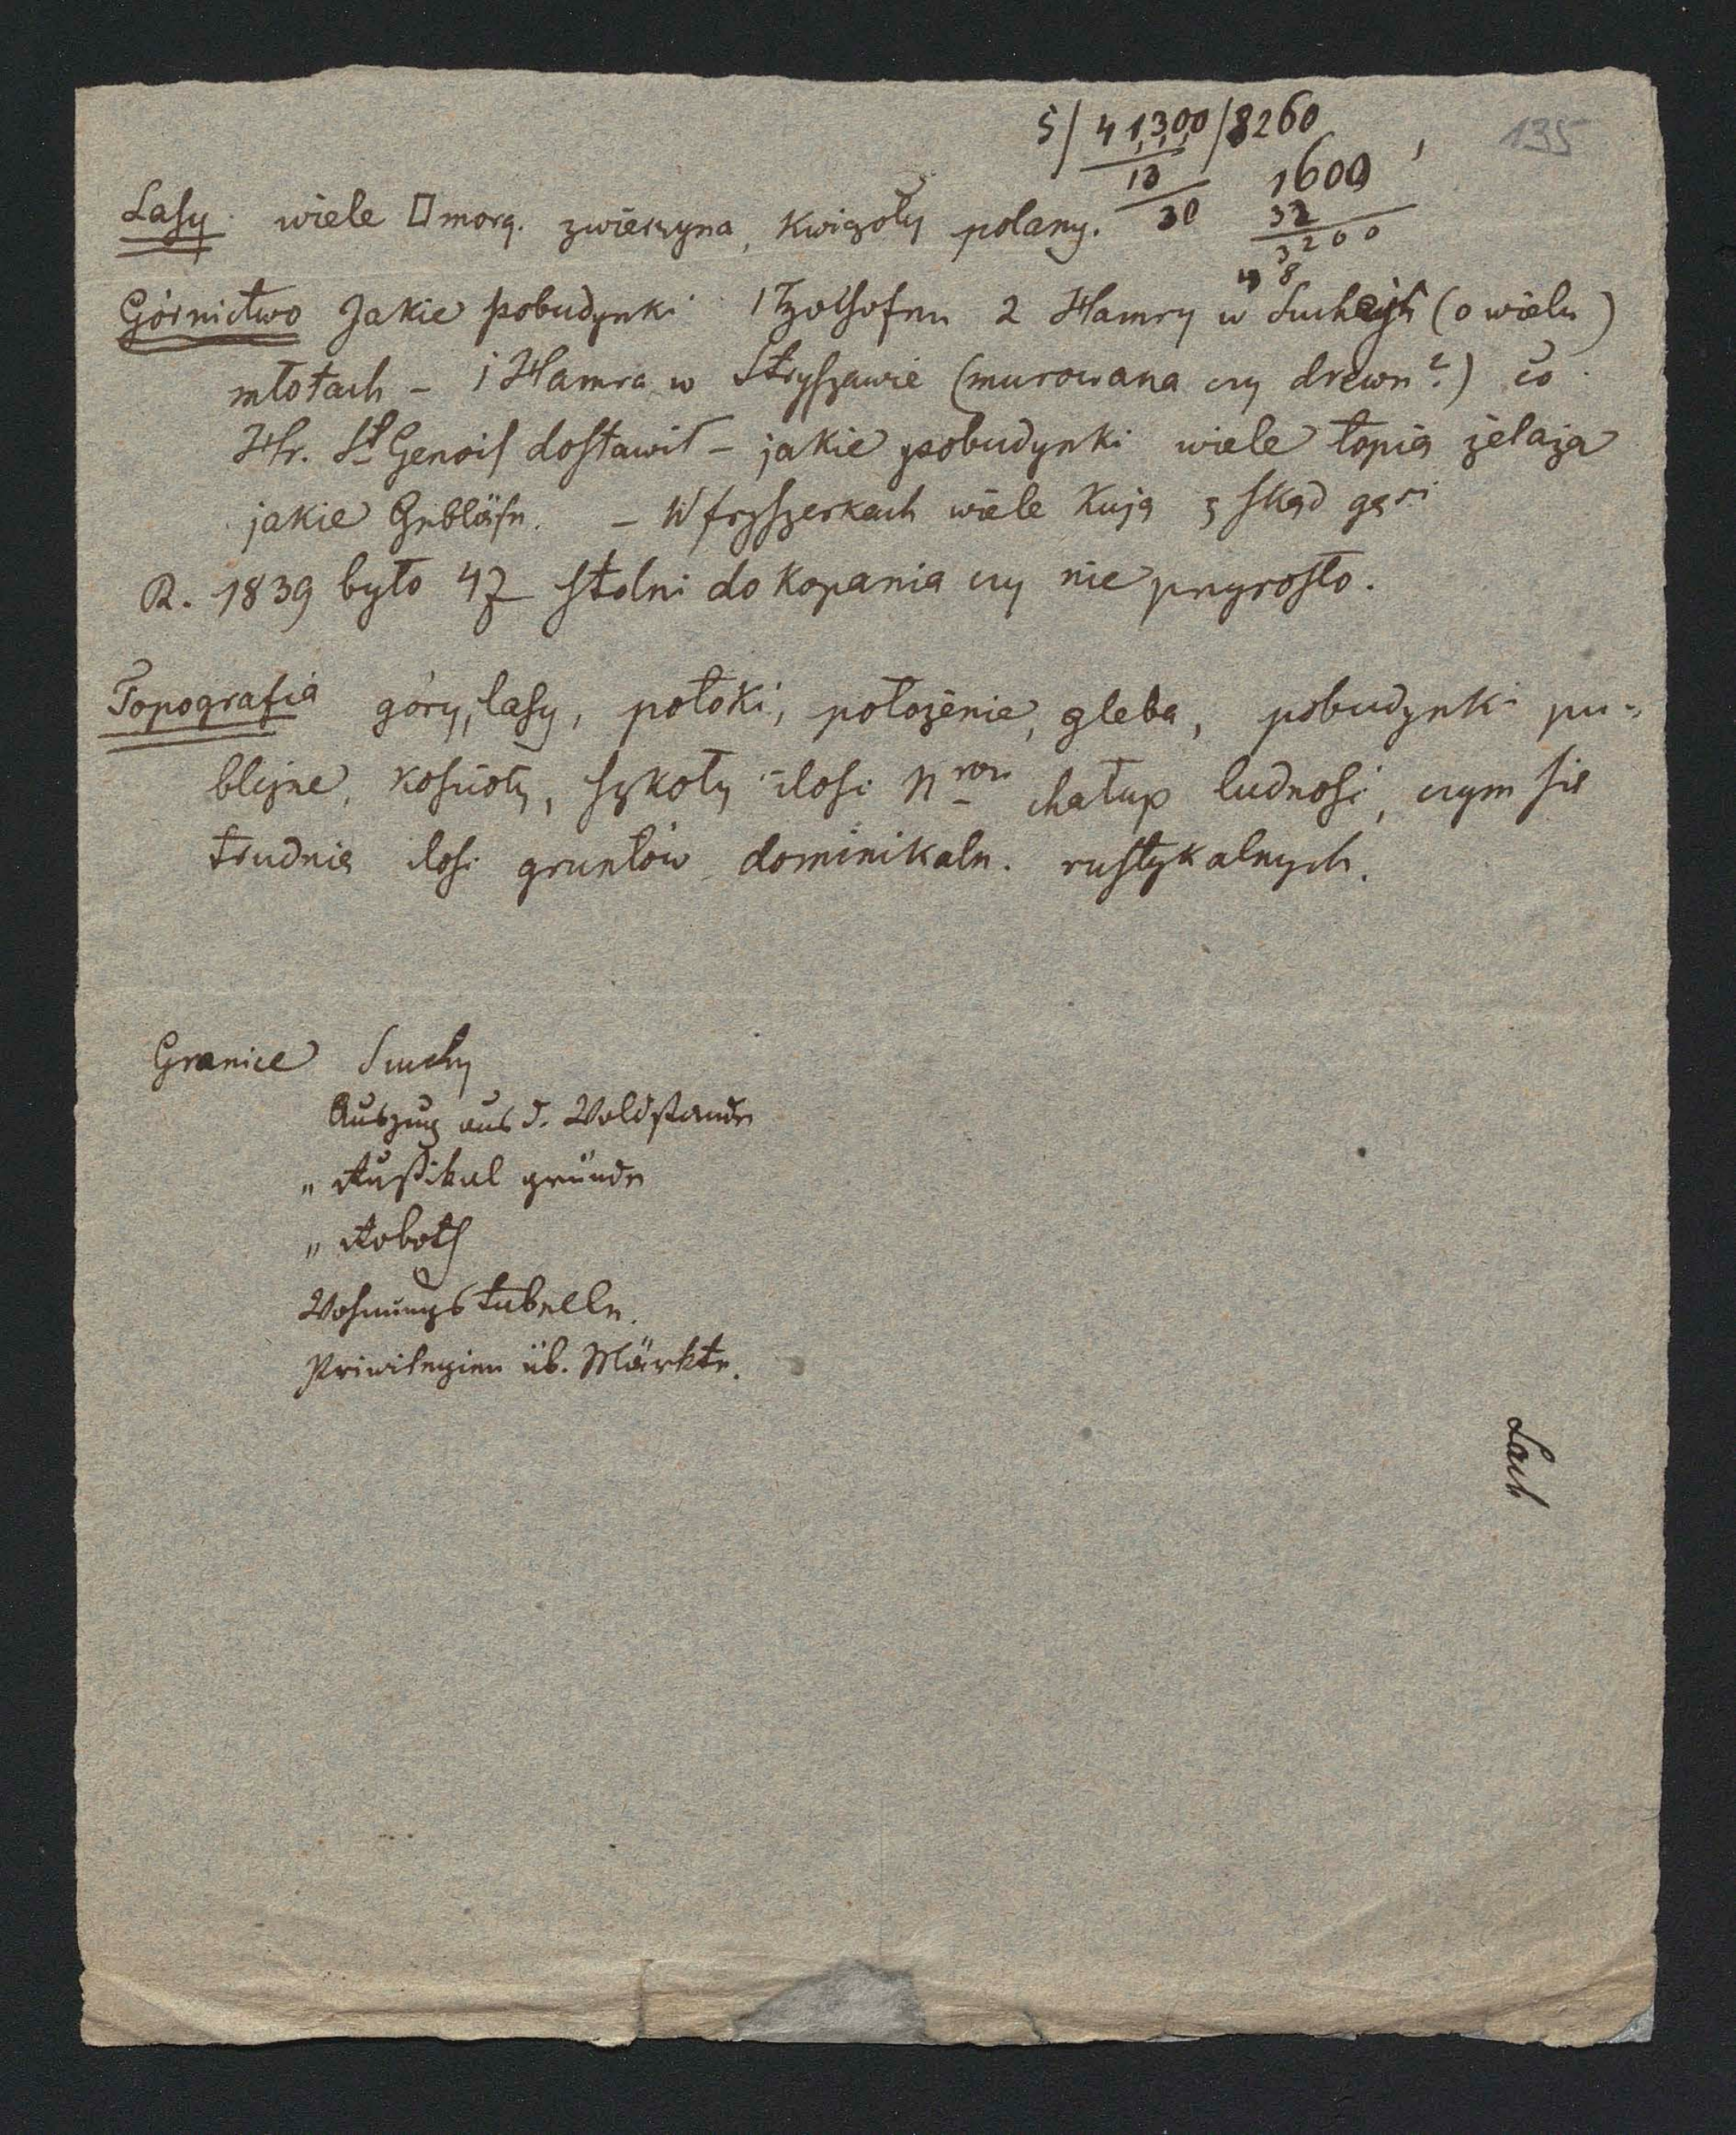 135
5/ 41,300 /8260
13
30
1600
32
3200
Lasy. wiele □ morg. zwierzyna, Kwiczoły polany.
Górnictwo Jakie pobudynki 1 Hohofen 2 Hamry w Suchej (o wielu)
młotach – 1 Hamra w Stryszawie (murowana czy drewn?) co
Hr. St Genois dostawił – jakie pobudynki wiele topią żelaza
jakie Gebläse. – W fryszerkach wiele Kują z skąd gęsi
R. 1839 było 47 stolni do kopania czy nie przyrosło.
Topografia góry, lasy, potoki, położenie, gleba, pobudynki pu-
bliczne, kościoły, szkoły ilość Nrów chałup ludność, czym się
trudnią ilość gruntów dominikaln. rustykalnych.
Granice Suchy
Auszug aus d. Waldstande
" Rustikal gründe
" Roboth
Wohnungstabelle.
Priwilegien üb. Märkte.
Lach